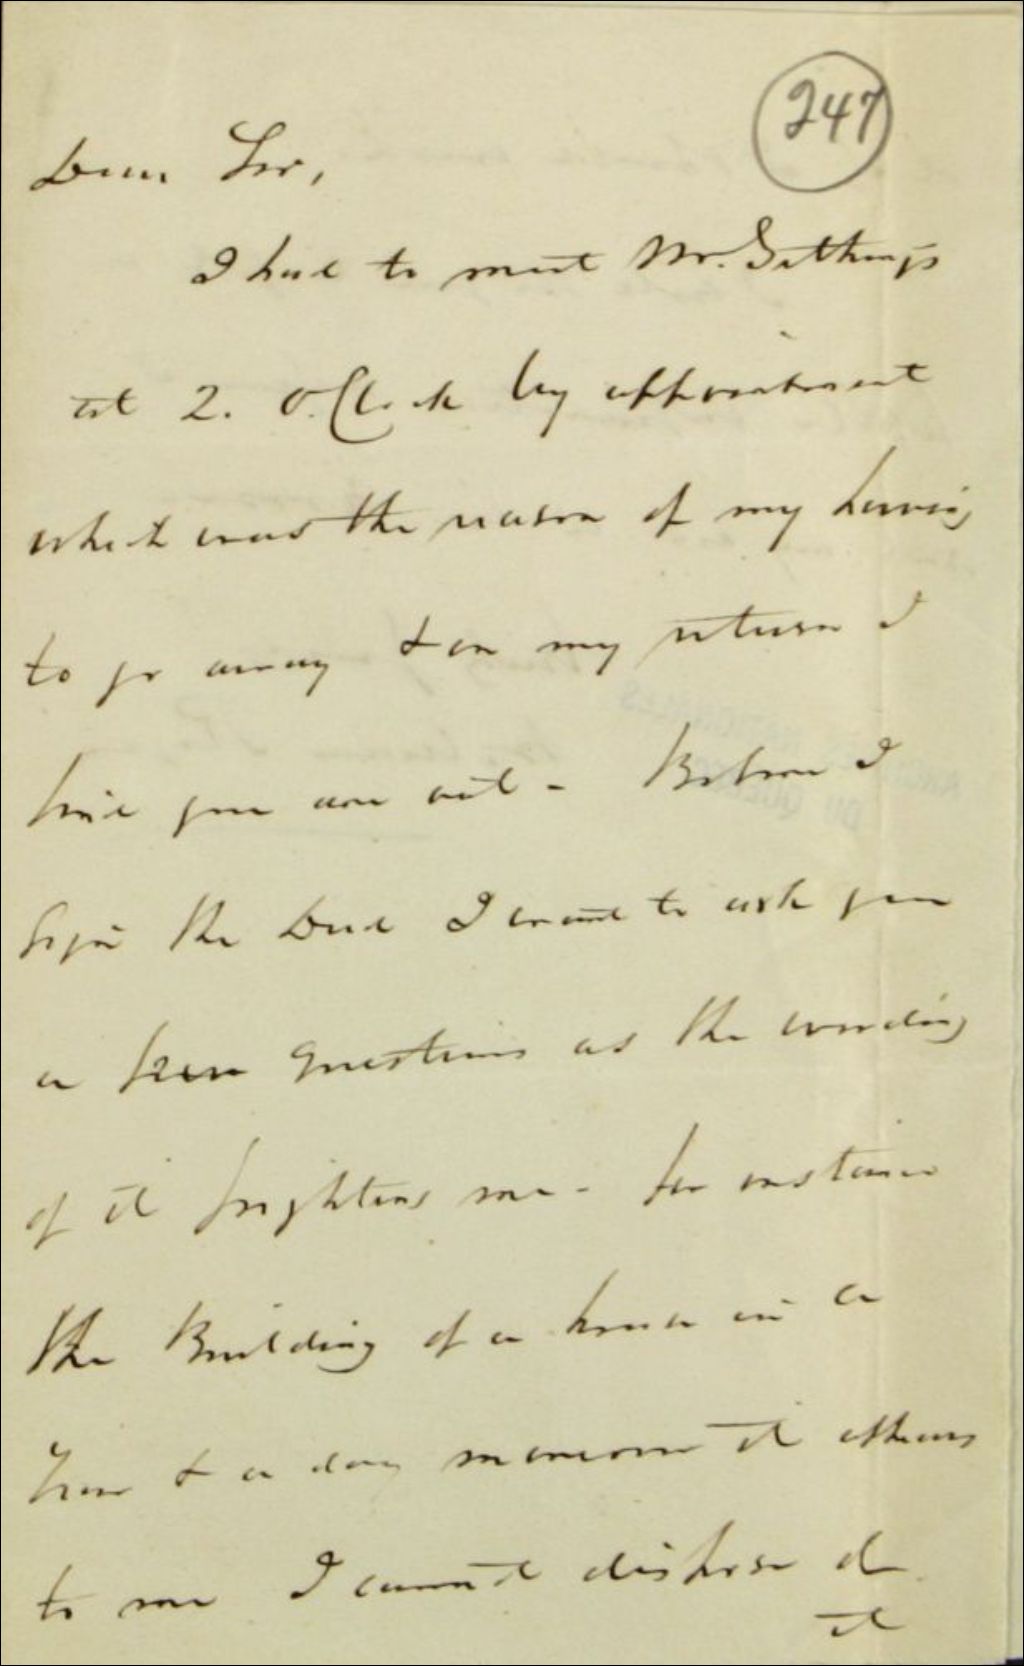 247
Dear Sir,
I had to meet Mr. Gethings
at 2. O.Clock by appointment
which was the reason of my having
to go away & on my return I
find you are out - Before I
sign the Deed I want to ask you
a few questions as the wording
of it frightens me - for instance
the Building of a house in a
year & a day moreover it appears
to me I cannot dispose of
it